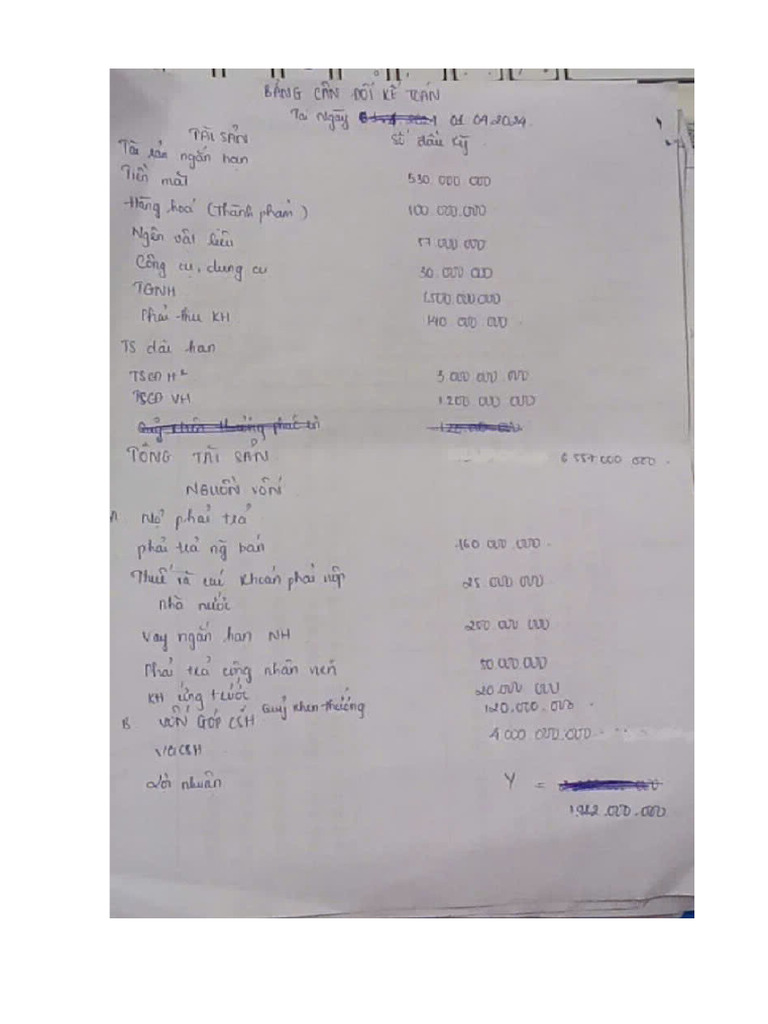 BẢNG CÂN ĐỐI KẾ TOÁN
Tại Ngày 01.09.2024
TÀI SẢN Số đầu kỳ
Tài sản ngắn hạn
Tiền mặt 530.000.000
Hàng hoá (Thành phẩm) 100.000.000
Ngên vật liệu 57.000.000
Công cụ, dụng cụ 30.000.000
TGNH 1.500.000.000
Phải thu KH 140.000.000
TS dài hạn
TSCĐ H² 3.000.000.000
TSCĐ VH 1.200.000.000
TỔNG TÀI SẢN 6.557.000.000
NGUỒN VỐN
A. Nợ phải trả
phải trả ng bán 160.000.000
Thuế và các khoản phải nộp 25.000.000
nhà nước
Vay ngắn hạn NH 200.000.000
Phải trả công nhân viên 50.000.000
KH ứng trước 20.000.000
Quỹ khen thưởng 120.000.000
B. VỐN GÓP CSH 4.000.000.000
VGCSH
Lợi nhuận Y =
1.982.000.000